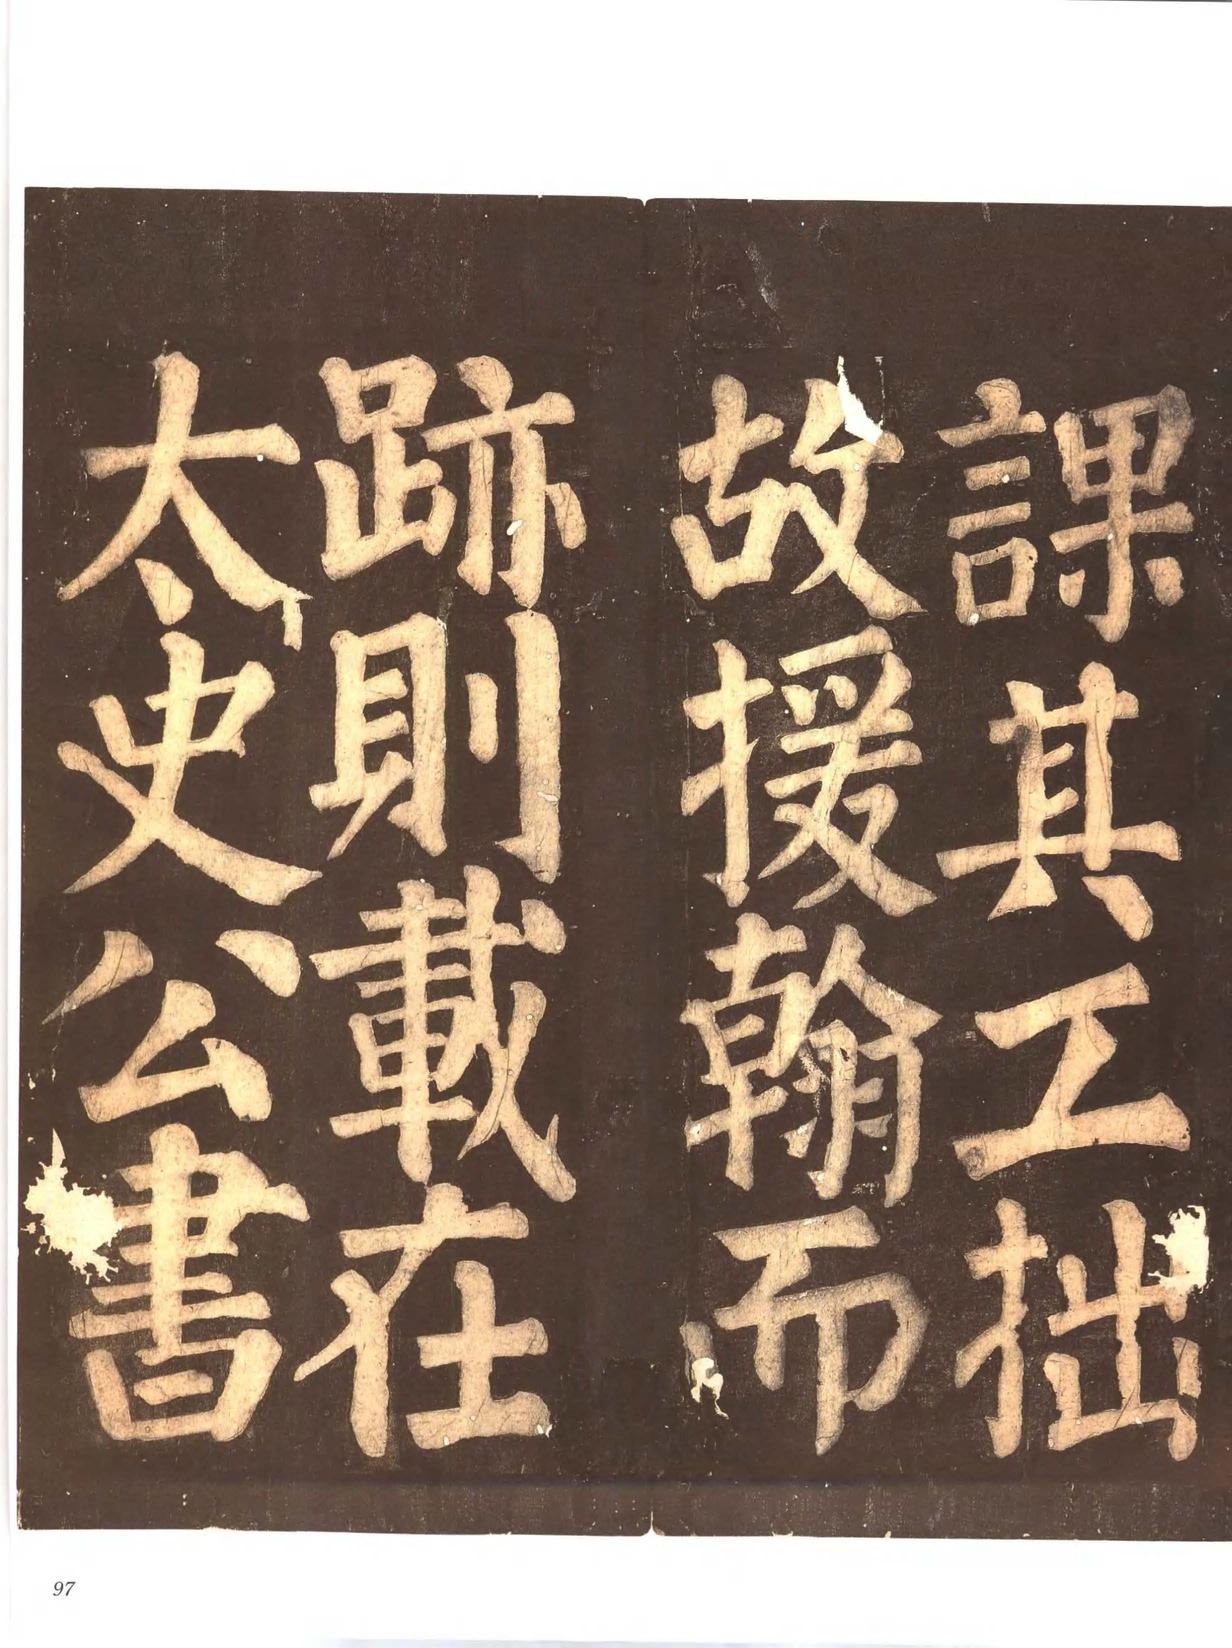 課其工拙
故援翰而
跡則載在
太史公書
97